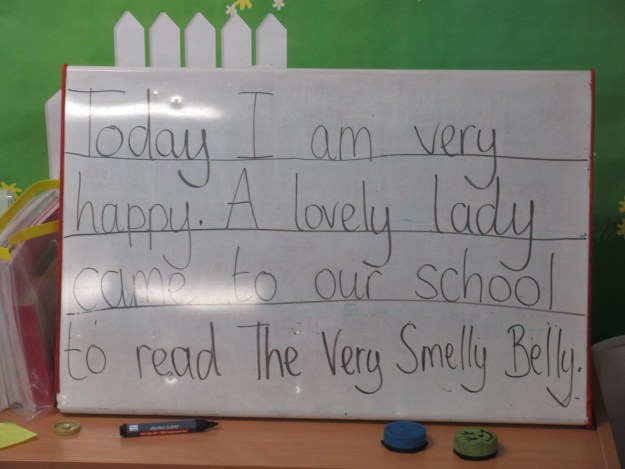 Today I am very
happy. A lovely lady
came to our school
to read The Very Smelly Belly.